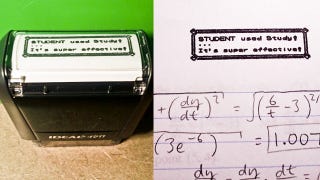 STUDENT used Study!
...
It's super effective!
IDEAL 4911
STUDENT used Study!
...
It's super effective!
+ (dy/dt)² = √(6/t - 3)²
(3e⁻⁶) = 1.007
dy dy dt